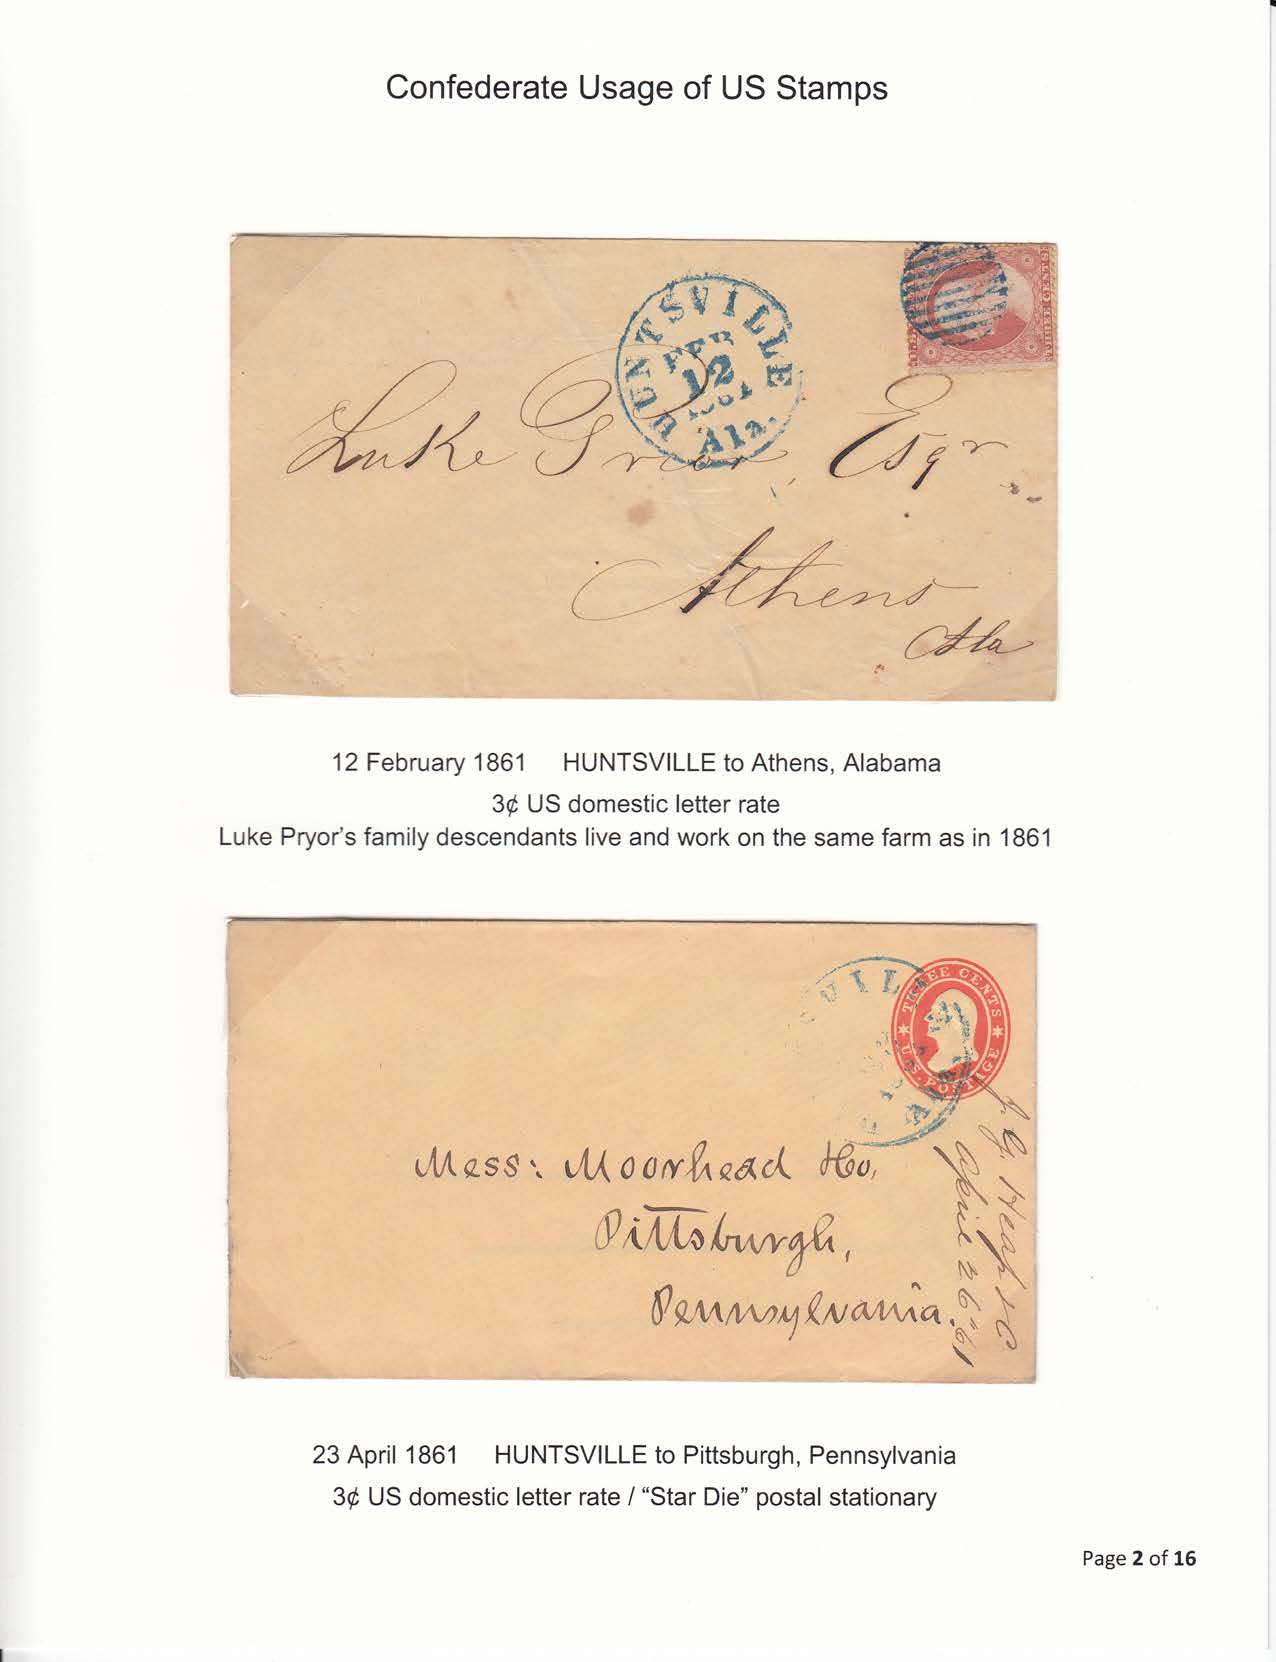 Confederate Usage of US Stamps
HUNTSVILLE
FEB
12
1861
Ala.
THREE CENTS
Luke Prior, Esqr
Athens
Ala
12 February 1861 HUNTSVILLE to Athens, Alabama
3¢ US domestic letter rate
Luke Pryor's family descendants live and work on the same farm as in 1861
THREE CENTS
U.S. POSTAGE
VILL
Mess: Moorhead &Co,
Pittsburgh,
Pennsylvania.
April 26" 61
23 April 1861 HUNTSVILLE to Pittsburgh, Pennsylvania
3¢ US domestic letter rate / “Star Die” postal stationary
Page 2 of 16